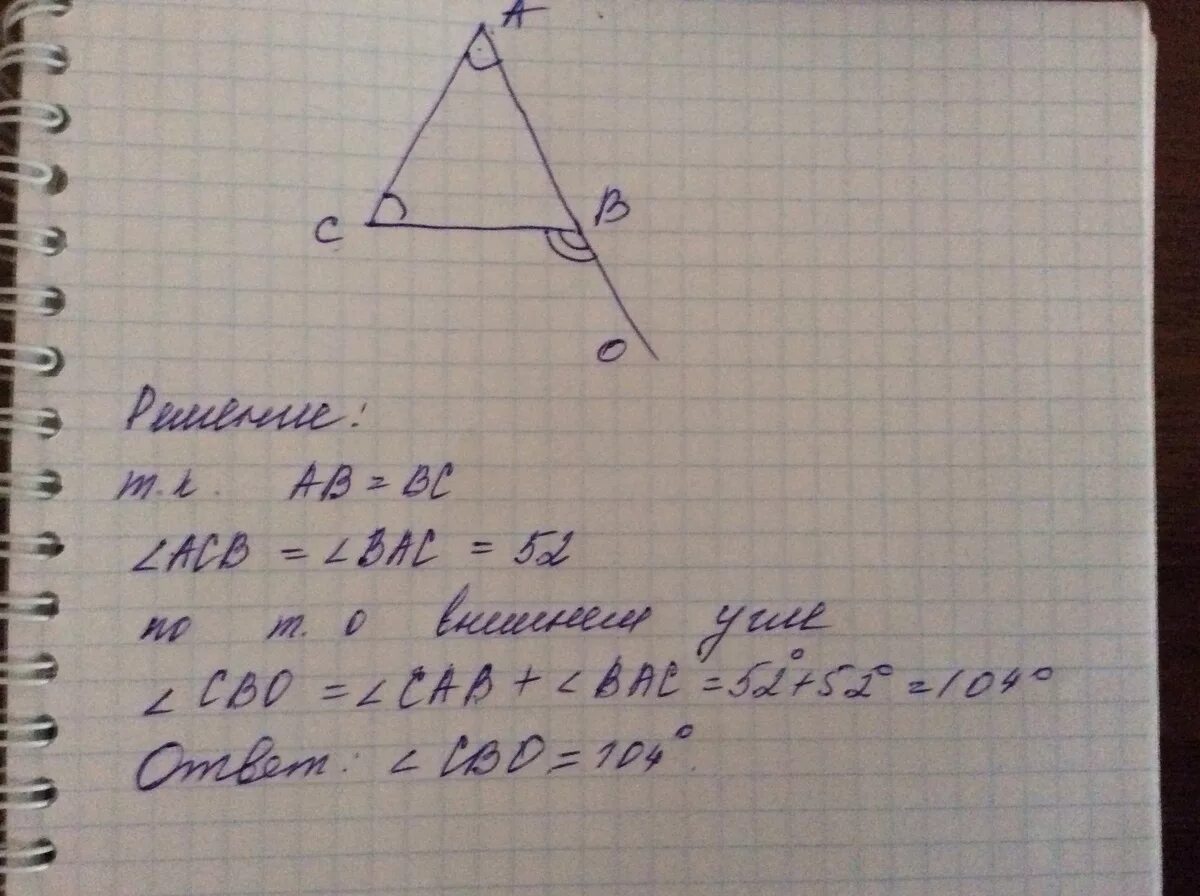 A
B
C
O
Решение:
т.к. AB = BC
∠ACB = ∠BAC = 52
по т. о внешнем угле
∠CBO = ∠CAB + ∠BAC = 52° + 52° = 104°
Ответ: ∠CBO = 104°.